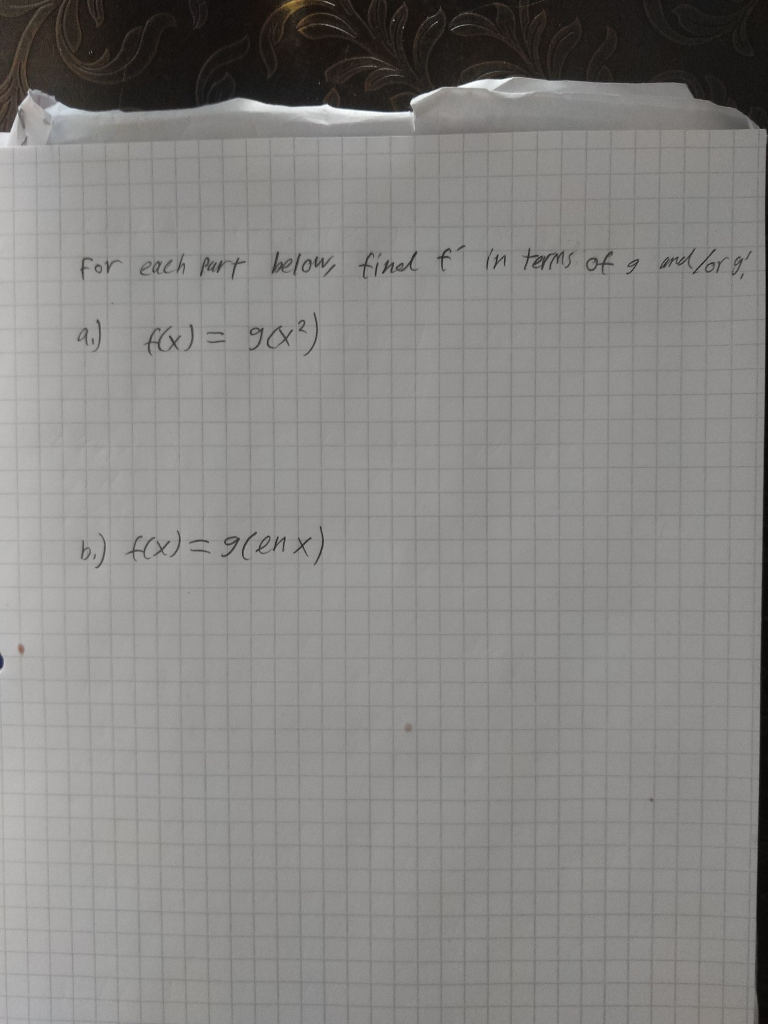 For each part below, find f' in terms of g and/or g'.
a.) f(x) = g(x²)
b.) f(x) = g(ln x)